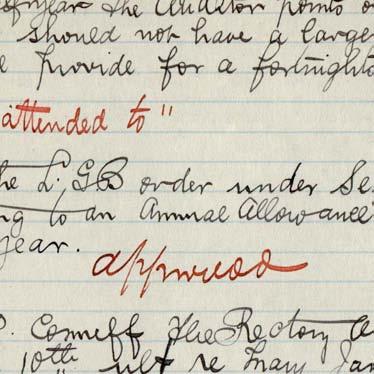 year the Auditor points o
should not have a large
e provide for a fortnight
attended to"
he L.G.B order under Se
ng to an Annual Allowance
year.
approved
P. Conneff The Rectory
10th ult re Mary Jan